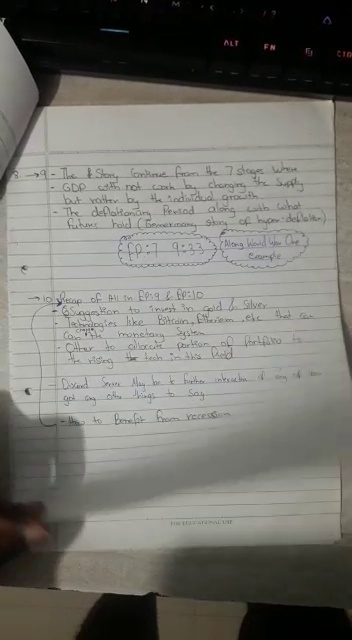 ALT FN
→ 9 - The $ Story Continue from the 7 stages where
- GDP with not work by changing the Supply
but rather by the individual growth.
- The deflationary Period along with what
future hold ( story of hyper-deflation)
EP:7 9:33
Along World War One
example
→ 10 Recap of All in EP:9 & EP:10
- Suggestion to invest in gold & Silver
- Technologies like Bitcoin, etc that can
the monetary System
- Either to allocate portion of to
the rising tech in this field
- Discord Server May be to further interaction if any of
got any other things to say
- to Benefit from recession